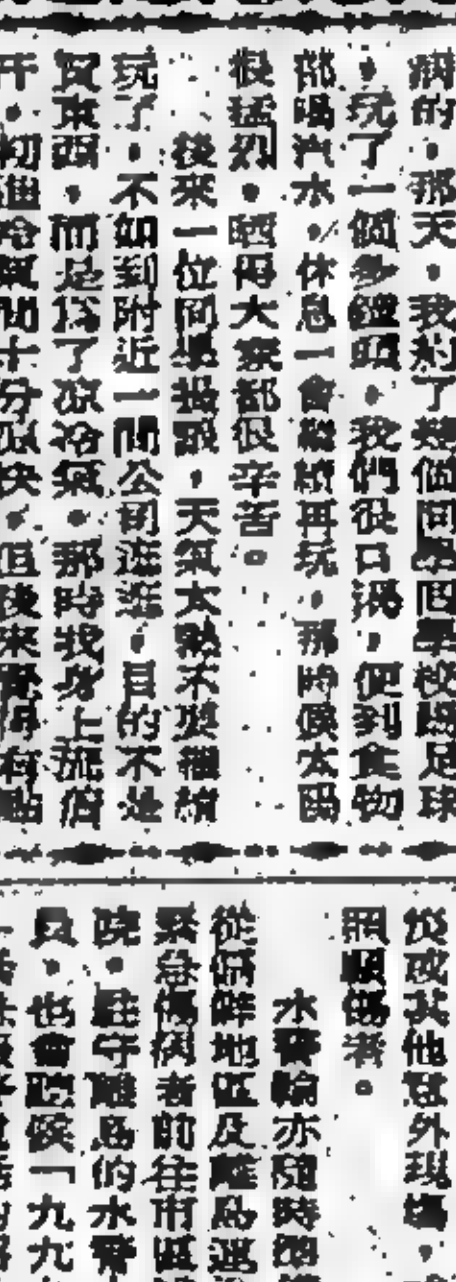 病的。那天，我約了幾個同學回學校踢足球
，玩了一個多鐘頭，我們很口渴，便到食物
部喝汽水，休息一會繼續再玩，那時候太陽
很猛烈，晒得大家都很辛苦。
後來一位同學提議，天氣太熱不宜繼續
玩了，不如到附近一間公司逛逛，目的不是
買東西，而是為了涼冷氣，那時我身上流個
初進冷氣間十分涼快，但後來覺得有點
災或其他意外現場，
照顧傷者。
水警輪亦隨時準
從偏僻地區及離島運
緊急傷病者前往市區
院，駐守離島的水警
員，也會聽候「九九